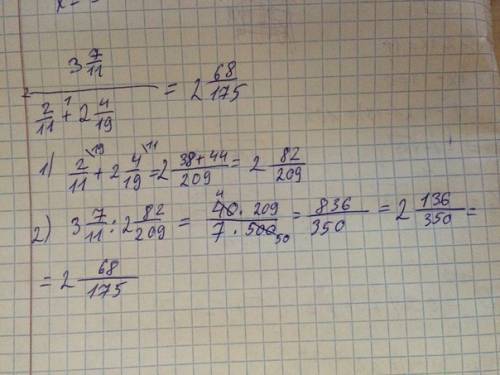 (3 7/11) / (2/11 + 2 4/19) = 2 68/175
1) 2/11 \19 + 2 4/19 \11 = 2 (38+44)/209 = 2 82/209
2) 3 7/11 : 2 82/209 = (40 4 · 209)/(7 · 500 50) = 836/350 = 2 136/350 =
= 2 68/175